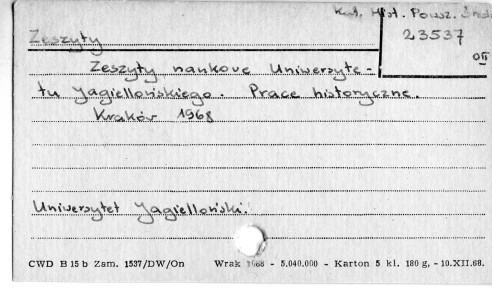 Kat. Hist. Powsz. Śred.
23537
OII
Zeszyty
Zeszyty naukowe Uniwersyte-
tu Jagiellońskiego. Prace historyczne.
Kraków 1968
Uniwersytet Jagielloński.
CWD B 15 b Zam. 1537/DW/On Wrak 1968 - 5.040.000 - Karton 5 kl. 180 g, - 10.XII.68.